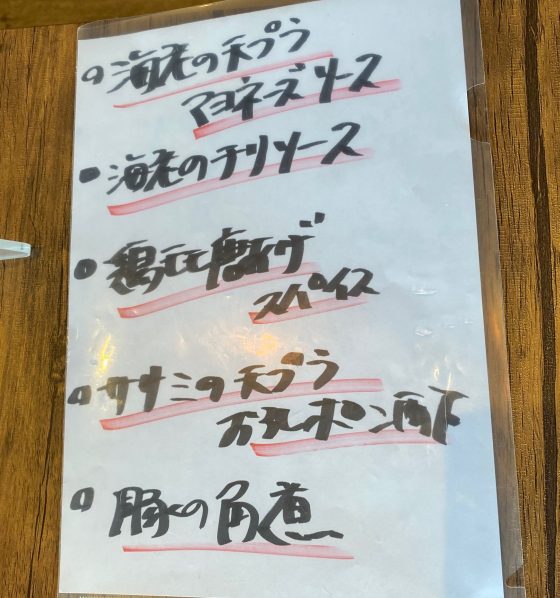 海老の天プラ
マヨネーズソース
海老のチリソース
鶏モモ唐揚げ
スパイス
ササミの天プラ
万能ポン酢
豚の角煮